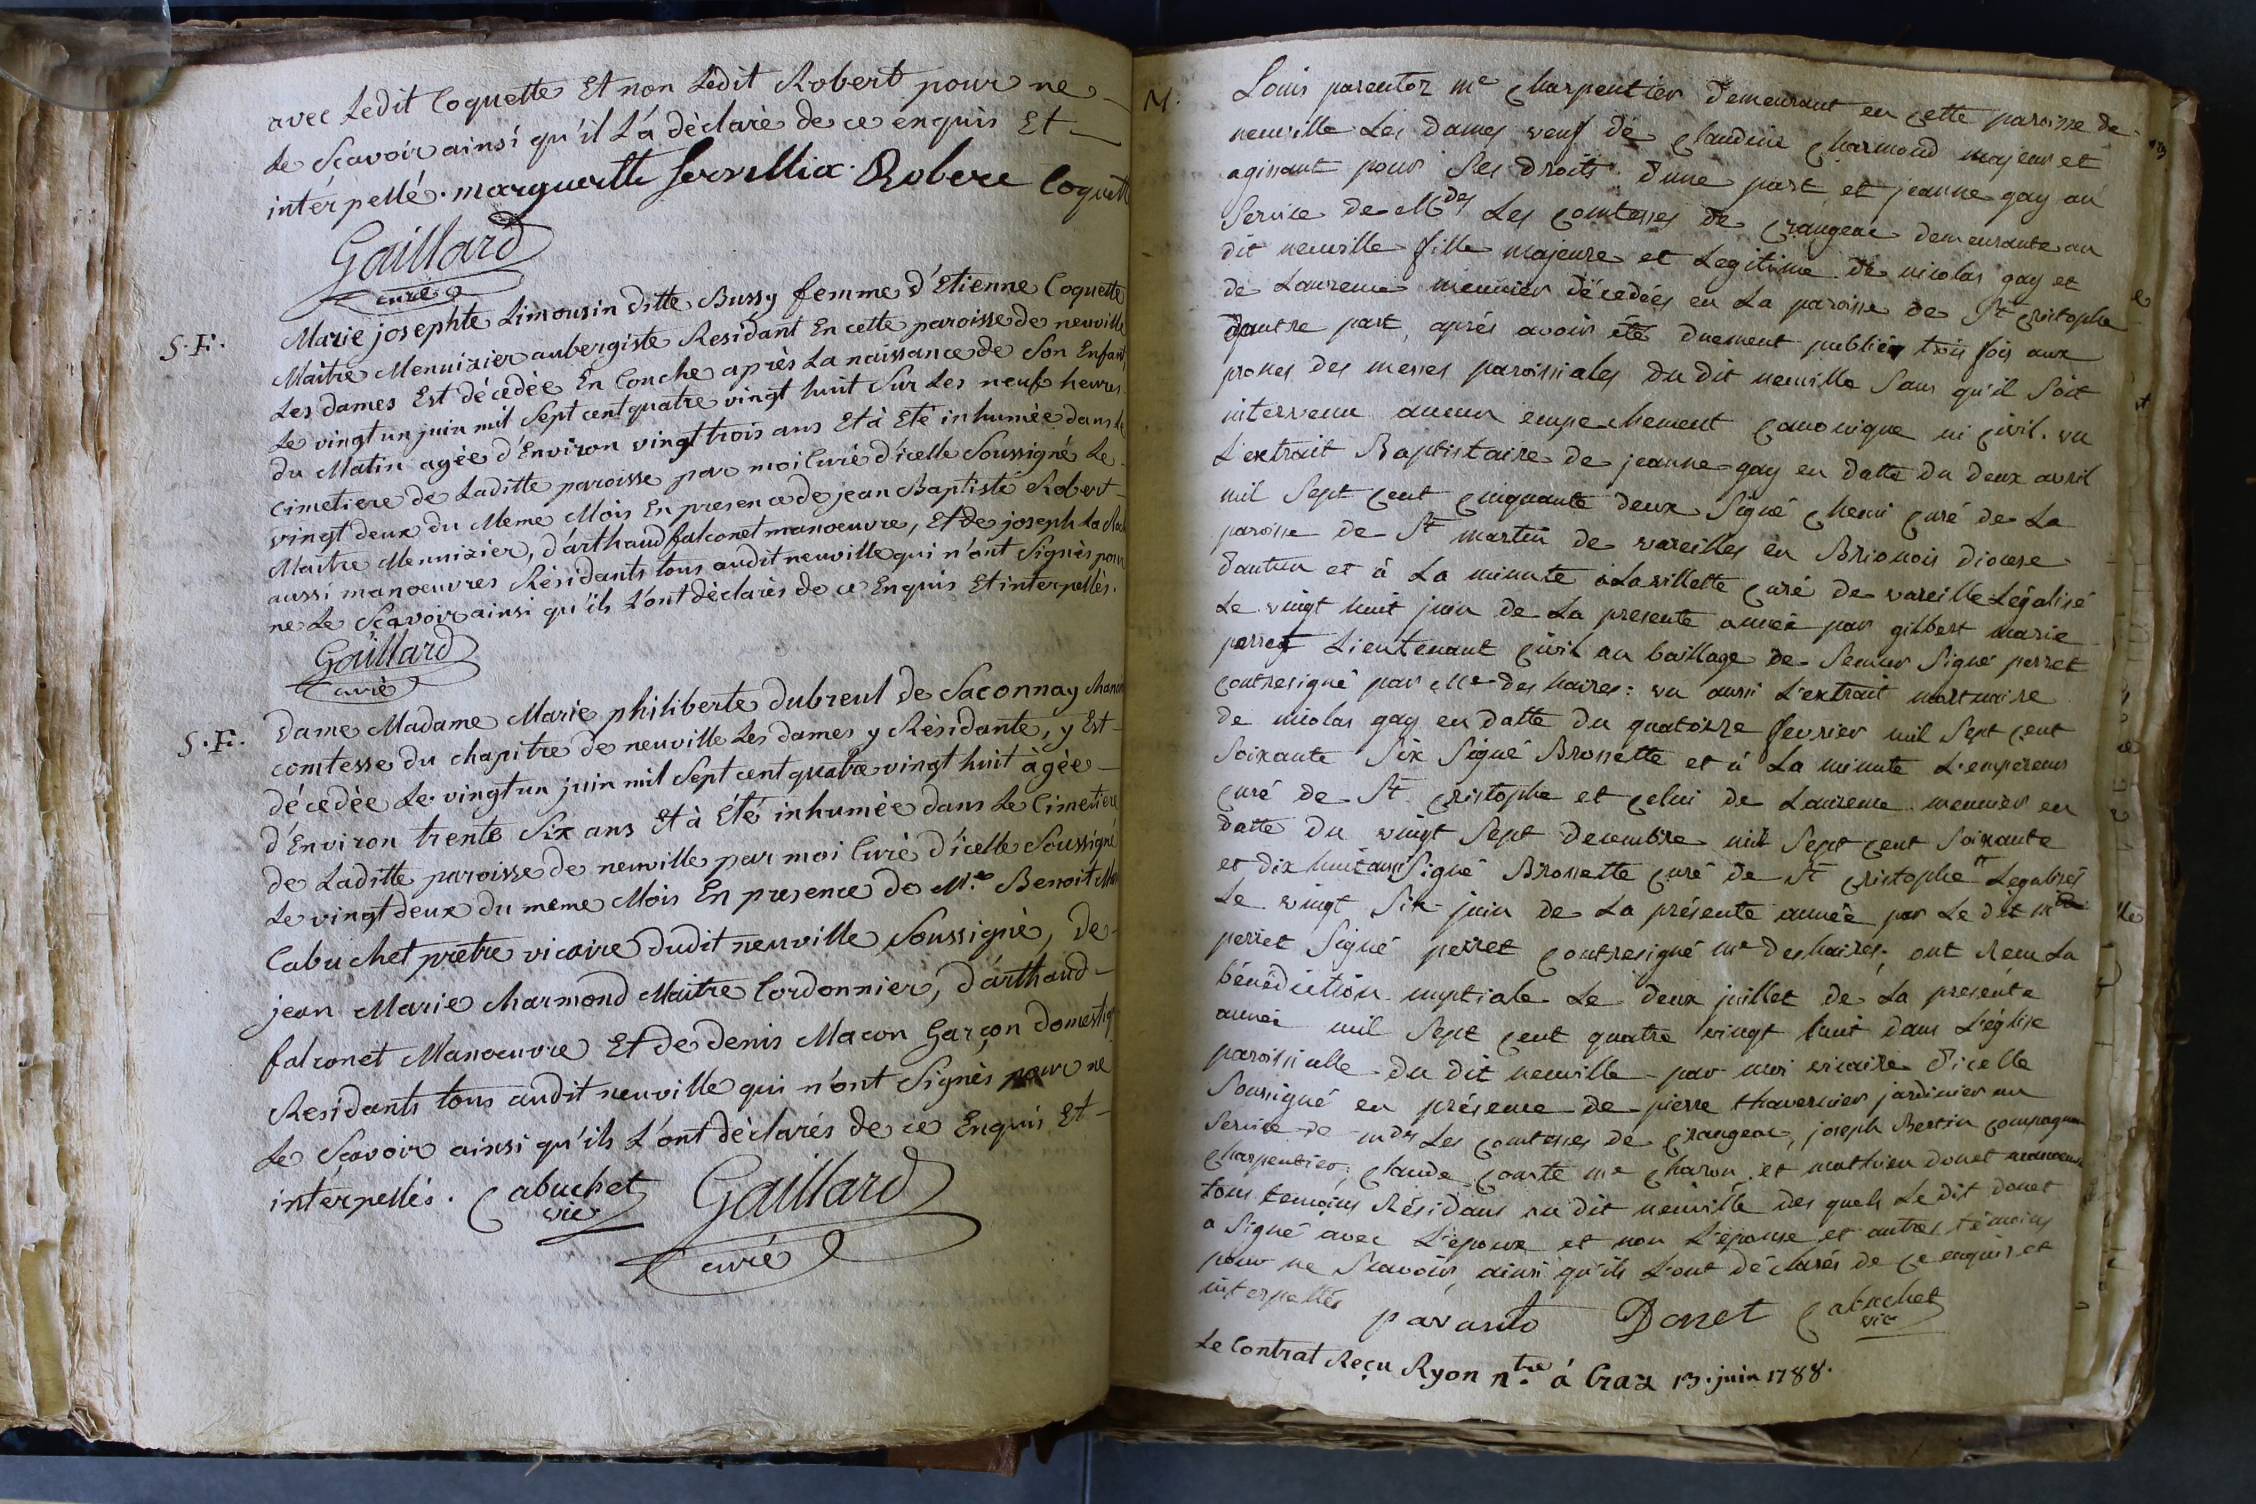 avec Ledit Coquette Et non Ledit Robert pour ne
Le Scavoir ainsi qu'il L'a déclaré de ce enquis Et
intérpellé. margueritte Robere Coquett
Gaillard
curé
S.F.
Marie josephte Limousin ditte Bussy femme d'Etienne Coquette
Maitre Menuizier aubergiste Residant En cette paroisse de neuville
Les dames Est décédée En Couche après La naissance de Son Enfant
Le vingt un juin mil Sept cent quatre vingt huit Sur Les neuf heures
du Matin agée d'Environ vingt trois ans Et à Eté inhumée dans Le
Cimetiere de Laditte paroisse par moi Curé d'icelle Soussigné Le
vingt deux du Meme Mois En presence de jean Baptiste Robert
Maitre Menuizier, d'arthaud falconet manoeuvre, Et de joseph
aussi manoeuvres Résidants tous audit neuville qui n'ont Signés pour
ne Le Scavoir ainsi qu'ils L'ont déclarés de ce Enquis Et interpellés.
Gaillard
curé
S.F.
Dame Madame Marie philiberte dubreul de Saconnay
comtesse du chapitre de neuville Les dames y Résidante, y Est
décedée Le vingt un juin mil Sept cent quatre vingt huit àgée
d'Environ trente Six ans Et à Eté inhumée dans Le Cimetiere
de Laditte paroisse de neuville par moi Curé d'icelle Soussigné
Le vingt deux du meme Mois En presence de Mre Benoit
Cabuchet prétre vicaire dudit neuville Soussigné, de
jean Marie Charmond Maitre Cordonnier, d'arthaud
falconet Manoeuvre Et de denis Macon Garçon domestiq
Residants tous audit neuville qui n'ont Signés pour ne
Le Scavoir ainsi qu'ils L'ont déclarés de ce Enquis Et
interpellés. Cabuchet Gaillard
vic
curé
M.
Louis parentoz me Charpentier demeurant en cette paroisse de
neuville Les dames veuf de Claudine Charmond majeur et
agissant pour Ses droits d'une part et jeanne gay au
Service de Mdes Les Comtesses de Crangeac demeurante au
dit neuville fille majeure et Legitime de nicolas gay et
de Laurence meunier décedées en La paroisse de St Cristophe
d'autre part, après avoir été duement publiés trois fois aux
prones des messes paroissiales du dit neuville Sans qu'il Soit
intervenu aucun empechement Canonique ni Civil. vu
L'extrait Baptistaire de jeanne gay en datte du deux avril
mil Sept Cent Cinquante deux Signé Curé de La
paroisse de St martin de vareilles en Brionois diocese
d'autun et à La minute Lavillette Curé de vareille Légalisé
Le vingt huit juin de La presente année par gilbert marie
perret Lieutenant Civil au baillage de Semur Signé perret
Contresigné par Me des haires: vu aussi L'extrait mortuaire
de nicolas gay en datte du quatorze fevrier mil Sept Cent
Soixante Six Signé Brossette et à La minute L'empereur
Curé de St Cristophe et Celui de Laurence meunier en
datte du vingt Sept decembre mil Sept Cent Soixante
et dix huit aussi Signé Brossette Curé de St Cristophe Legalisés
Le vingt Six juin de La présente année par Le dit
perret Signé perret Contresigné me deshaires; ont Recu La
bénédiction nuptiale Le deux juillet de La presente
année mil Sept Cent quatre vingt huit dans L'église
paroissialle du dit neuville par moi vicaire d'icelle
Soussigné en présence de pierre thavernier jardinier au
Service de mdes Les Comtesses de Crangeac, joseph Bertin Compagnon
Charpentier, Claude Comte me Charon, et mathieu donet manoeuvre
tous temoins Résidans au dit neuville des quels Le dit donet
a Signé avec L'époux et non L'épouse et autres témoins
pour ne Scavoir ainsi qu'ils L'ont déclarés de ce enquis et
interpellés
Donet Cabuchet
vic
Le Contrat Reçu Ryon ntre á Craz 13. juin 1788.